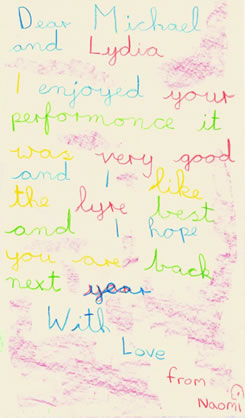 Dear Michael
and Lydia
I enjoyed your
performonce it
was very good
and I like
the lyre best
and I hope
you are back
next year
With
Love
from
Naomi